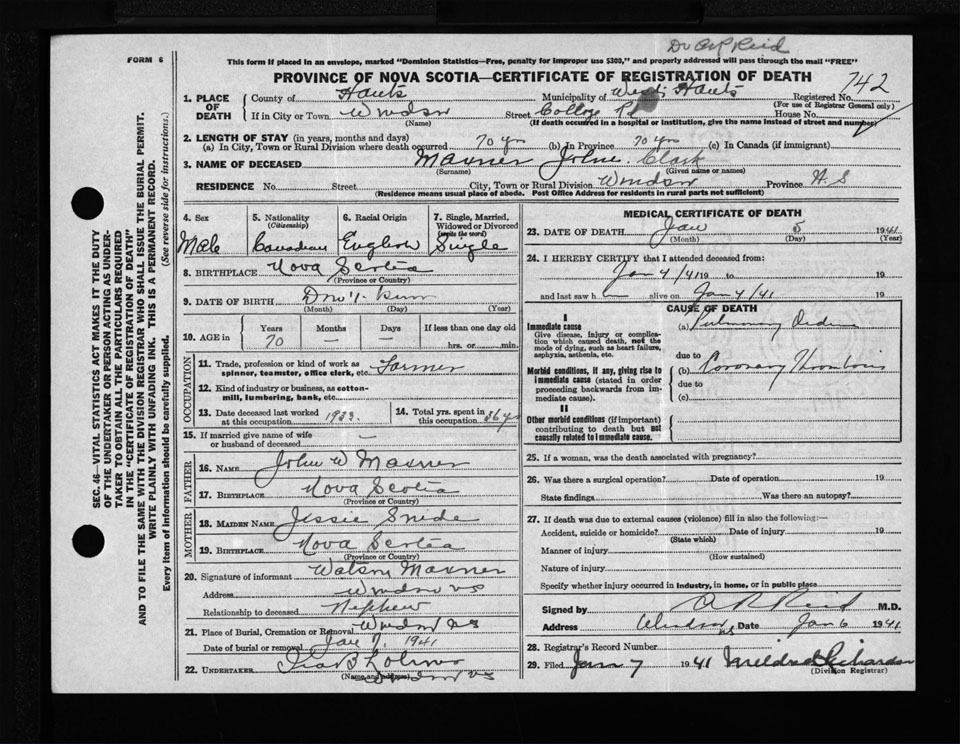 Dr A R Reid
FORM 6
This form if placed in an envelope, marked "Dominion Statistics—Free, penalty for improper use $300," and properly addressed will pass through the mail "FREE"
PROVINCE OF NOVA SCOTIA—CERTIFICATE OF REGISTRATION OF DEATH
742
1. PLACE OF DEATH County of Hants Municipality of West Hants Registered No.
(For use of Registrar General only)
If in City or Town Windsor Street College Rd House No.
(Name) (If death occurred in a hospital or institution, give the name instead of street and number)
2. LENGTH OF STAY (in years, months and days)
(a) In City, Town or Rural Division where death occurred 70 yrs (b) In Province 70 yrs (c) In Canada (if immigrant)
3. NAME OF DECEASED Maxner John Clark
(Surname) (Given name or names)
RESIDENCE No. Street City, Town or Rural Division Windsor Province N.S
(Residence means usual place of abode. Post Office Address for residents in rural parts not sufficient)
SEC. 46—VITAL STATISTICS ACT MAKES IT THE DUTY
OF THE UNDERTAKER OR PERSON ACTING AS UNDER-
TAKER TO OBTAIN ALL THE PARTICULARS REQUIRED
IN THE "CERTIFICATE OF REGISTRATION OF DEATH"
AND TO FILE THE SAME WITH THE DIVISION REGISTRAR WHO SHALL ISSUE THE BURIAL PERMIT.
WRITE PLAINLY WITH UNFADING INK. THIS IS A PERMANENT RECORD.
Every item of information should be carefully supplied. (See reverse side for instructions.)
4. Sex 5. Nationality 6. Racial Origin 7. Single, Married, Widowed or Divorced
(Citizenship) (write the word)
Male Canadian English Single
8. BIRTHPLACE Nova Scotia
(Province or Country)
9. DATE OF BIRTH Don't Know
(Month) (Day) (Year)
10. AGE in Years Months Days If less than one day old
70 — — hrs. or min.
OCCUPATION
11. Trade, profession or kind of work as spinner, teamster, office clerk, etc. Farmer
12. Kind of industry or business, as cotton-mill, lumbering, bank, etc.
13. Date deceased last worked at this occupation 1933 14. Total yrs. spent in this occupation 36 yrs
15. If married give name of wife or husband of deceased —
FATHER
16. NAME John W Maxner
17. BIRTHPLACE Nova Scotia
(Province or Country)
MOTHER
18. MAIDEN NAME Jessie
19. BIRTHPLACE Nova Scotia
(Province or Country)
20. Signature of informant Watson Maxner
Address Windsor NS
Relationship to deceased Nephew
21. Place of Burial, Cremation or Removal Windsor NS
Date of burial or removal Jan 7, 1941
22. UNDERTAKER
(Name and address) Windsor NS
MEDICAL CERTIFICATE OF DEATH
23. DATE OF DEATH Jan 5 1941
(Month) (Day) (Year)
24. I HEREBY CERTIFY that I attended deceased from:
Jan 4/41 19 to 19
and last saw h alive on Jan 4/41 19
CAUSE OF DEATH
I
Immediate cause
Give disease, injury or complication which caused death, not the mode of dying, such as heart failure, asphyxia, asthenia, etc.
(a) Pulmonary Oedema
due to
Morbid conditions, if any, giving rise to immediate cause (stated in order proceeding backwards from immediate cause).
(b) Coronary Thrombosis
due to
(c)
II
Other morbid conditions (if important) contributing to death but not causally related to immediate cause.
25. If a woman, was the death associated with pregnancy?
26. Was there a surgical operation? Date of operation 19
State findings Was there an autopsy?
27. If death was due to external causes (violence) fill in also the following:—
Accident, suicide or homicide? Date of injury 19
(State which)
Manner of injury
(How sustained)
Nature of injury
Specify whether injury occurred in industry, in home, or in public place
Signed by A R Reid M.D.
Address Windsor NS Date Jan 6 1941
28. Registrar's Record Number
29. Filed Jan 7 1941 Mildred Richardson
(Division Registrar)